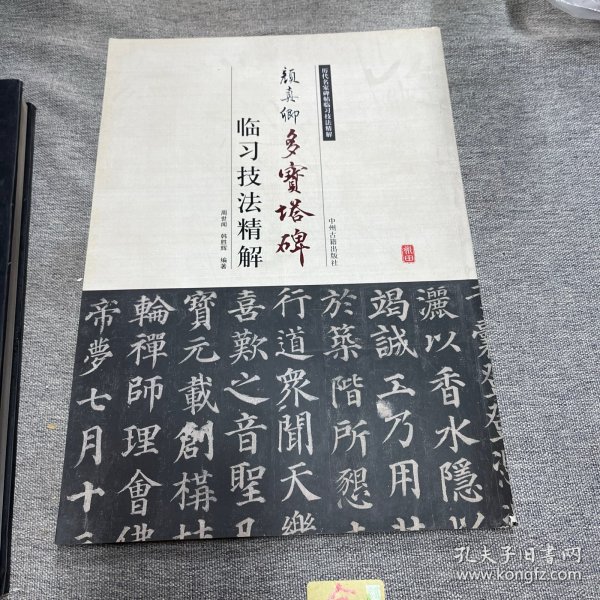 历代名家碑帖临习技法精解
颜真卿
多寳塔碑
临习技法精解
周世闻 韩胜辉 编著
中州古籍出版社
灑以香水隱
竭誠工乃用
於築階所懇
行道衆聞天樂
喜歎之音聖凡
寶元載創構
輪禪師理會佛
帝夢七月十三
孔夫子旧书网
www.kongfz.com